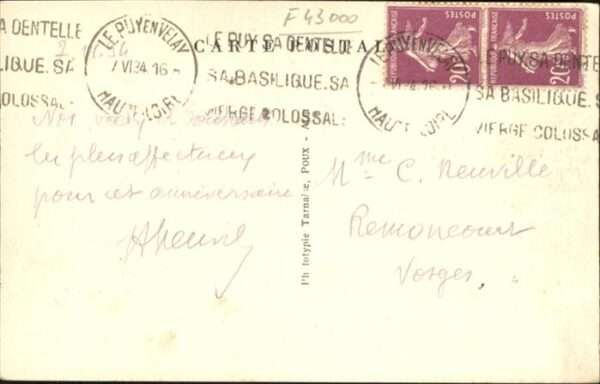 F 43000
A DENTELLE
LE PUY EN VELAY
7 VI 34 16-
HAUTE LOIRE
CARTE POSTALE
LE PUY SA DENTELLE
SA BASILIQUE. SA
VIERGE COLOSSALE
LIQUE. SA
COLOSSAL
POSTES
20
REPUBLIQUE FRANCAISE
POSTES
20
LE PUY EN VELAY
HAUTE LOIRE
LE PUY SA DENTE
SA BASILIQUE. S
VIERGE COLOSSAL
Nos
les plus affectueux
pour cet anniversaire
Phototypie Tarnaise, POUX - A
Mme C. Neuville
Remoncourt
Vosges